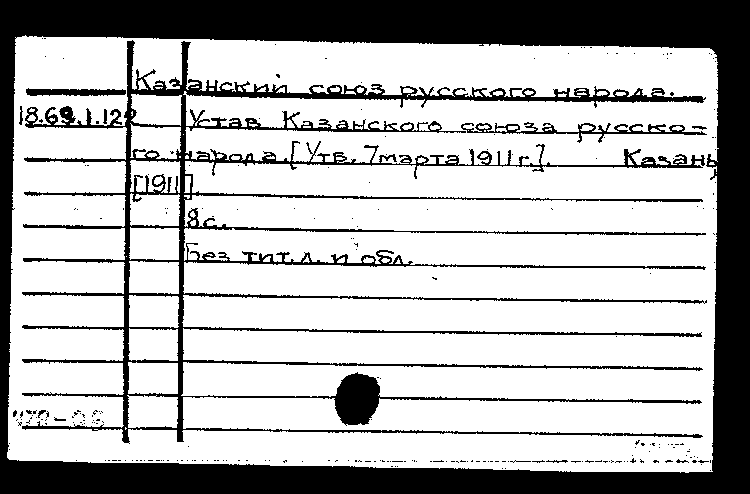 Казанский союз русского народа.
18.69.1.122 Устав Казанского союза русско-
го народа. [Утв. 7 марта 1911 г.]. Казань,
[1911].
8 с.
Без тит. л. и обл.